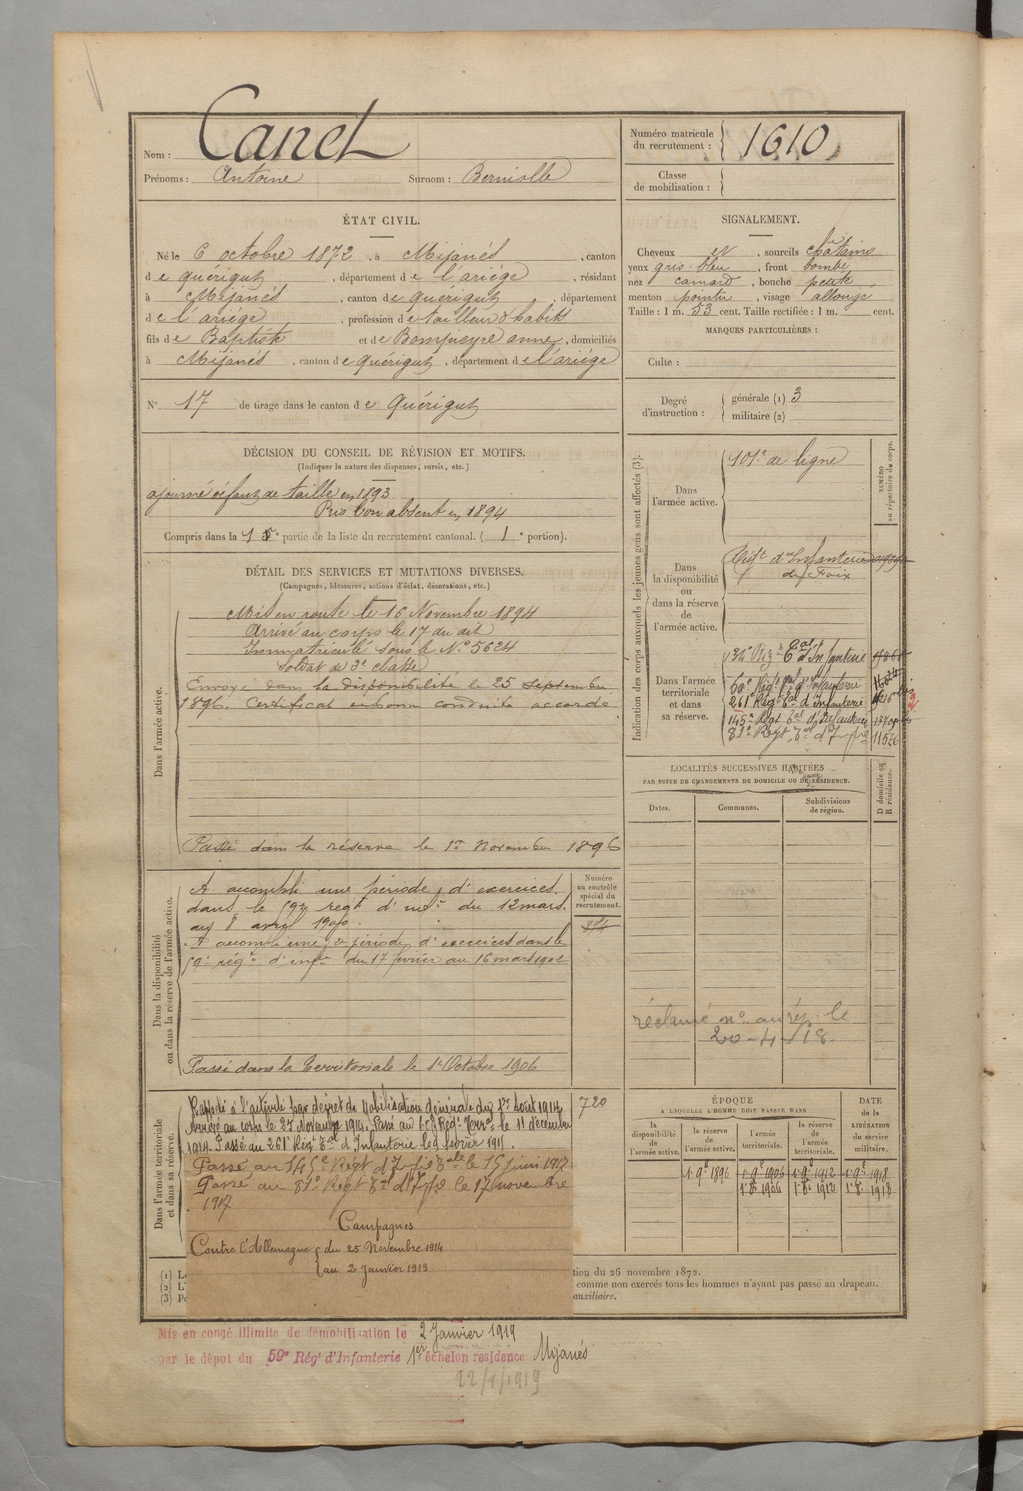 Nom : Canet
Prénoms : Antoine Surnom : Berniolle
Numéro matricule du recrutement : 1610
Classe de mobilisation :
ÉTAT CIVIL.
Né le 6 octobre 1872, à Mijanès, canton
de Quérigut, département de l'ariége, résidant
à Mijanès, canton de Quérigut, département
de l'ariége, profession de tailleur d'habits
fils de Baptiste et de Bompieyre anne, domiciliés
à Mijanès, canton de Quérigut, département de l'ariége
N° 17 de tirage dans le canton de Quérigut
SIGNALEMENT.
Cheveux et, sourcils châtains
yeux gris-bleu, front bombé
nez camard, bouche petite
menton pointu, visage allongé
Taille : 1 m. 53 cent. Taille rectifiée : 1 m. cent.
MARQUES PARTICULIÈRES :
Culte :
Degré d'instruction : générale (1) 3
militaire (2)
DÉCISION DU CONSEIL DE RÉVISION ET MOTIFS.
(Indiquer la nature des dispenses, sursis, etc.)
ajourné défaut de taille en 1893
Pris bon absent en 1894
Compris dans la 1 partie de la liste du recrutement cantonal. ( 1e portion).
DÉTAIL DES SERVICES ET MUTATIONS DIVERSES.
(Campagnes, blessures, actions d'éclat, décorations, etc.)
Dans l'armée active.
Mis en route le 16 Novembre 1894
Arrivé au corps le 17 du dit
Immatriculé sous le N° 5624
Soldat de 2e classe
Envoyé dans la disponibilité le 25 Septembre
1896. Certificat de bonne conduite accordé
Passé dans la réserve le 1er Novembre 1896
Dans la disponibilité ou dans la réserve de l'armée active.
A accompli une 1e période d'exercices
dans le 59e régt d'infie du 12 mars
au 8 avril 1900.
A accompli une 2e période d'exercices dans le
59e régt d'infie du 17 février au 16 mars 1902
Passé dans la Territoriale le 1er Octobre 1906
Numéro au contrôle spécial du recrutement.
720
Dans l'armée territoriale et dans sa réserve.
Rappelé à l'activité par décret de Mobilisation Générale du 1er Août 1914
Arrivé au corps le 27 Novembre 1914. Passé au 60e Régt Terral le 11 décembre
1914. Passé au 261e Régt Tal d'Infanterie le 9 février 1915.
Passé au 145e Régt d'Infie Tale le 15 juin 1917
Passé au 83e Régt Tal d'Infie le 17 novembre
1917
Campagnes
Contre l'Allemagne du 25 Novembre 1914
au 2 Janvier 1919
Indication des corps auxquels les jeunes gens sont affectés (3).
NUMÉRO au répertoire du corps.
Dans l'armée active.
101e de ligne
Dans la disponibilité ou dans la réserve de l'armée active.
Régt d'Infanterie
de Foix
Dans l'armée territoriale et dans sa réserve.
134e Régt Tal d'Infanterie
60e Régt Tal d'Infanterie
261e Régt Tal d'Infanterie
145e Régt Tal d'Infanterie
83e Régt Tal d'Infie 11526
LOCALITÉS SUCCESSIVES HABITÉES
PAR SUITE DE CHANGEMENTS DE DOMICILE OU DE RÉSIDENCE.
Dates. Communes. Subdivisions de région. D domicile ou R résidence.
réclamé n° au rép. le
20-4-18.
ÉPOQUE
A LAQUELLE L'HOMME DOIT PASSER DANS
DATE de la LIBÉRATION du service militaire.
la disponibilité de l'armée active. la réserve de l'armée active. l'armée territoriale. la réserve de l'armée territoriale.
1. 9bre 1896 1. 9bre 1906 1. 9bre 1912 1. 9bre 1918
1. 8bre 1906 1. 8bre 1912 1. 8. 1918
(1) L
(2) L'
(3) P
tion du 26 novembre 1872.
comme non exercés tous les hommes n'ayant pas passé au drapeau.
auxiliaire.
Mis en congé illimité de démobilisation le 2 Janvier 1919
par le dépot du 59e Régt d'Infanterie 1er échelon residence Mijanès
22/1/1919